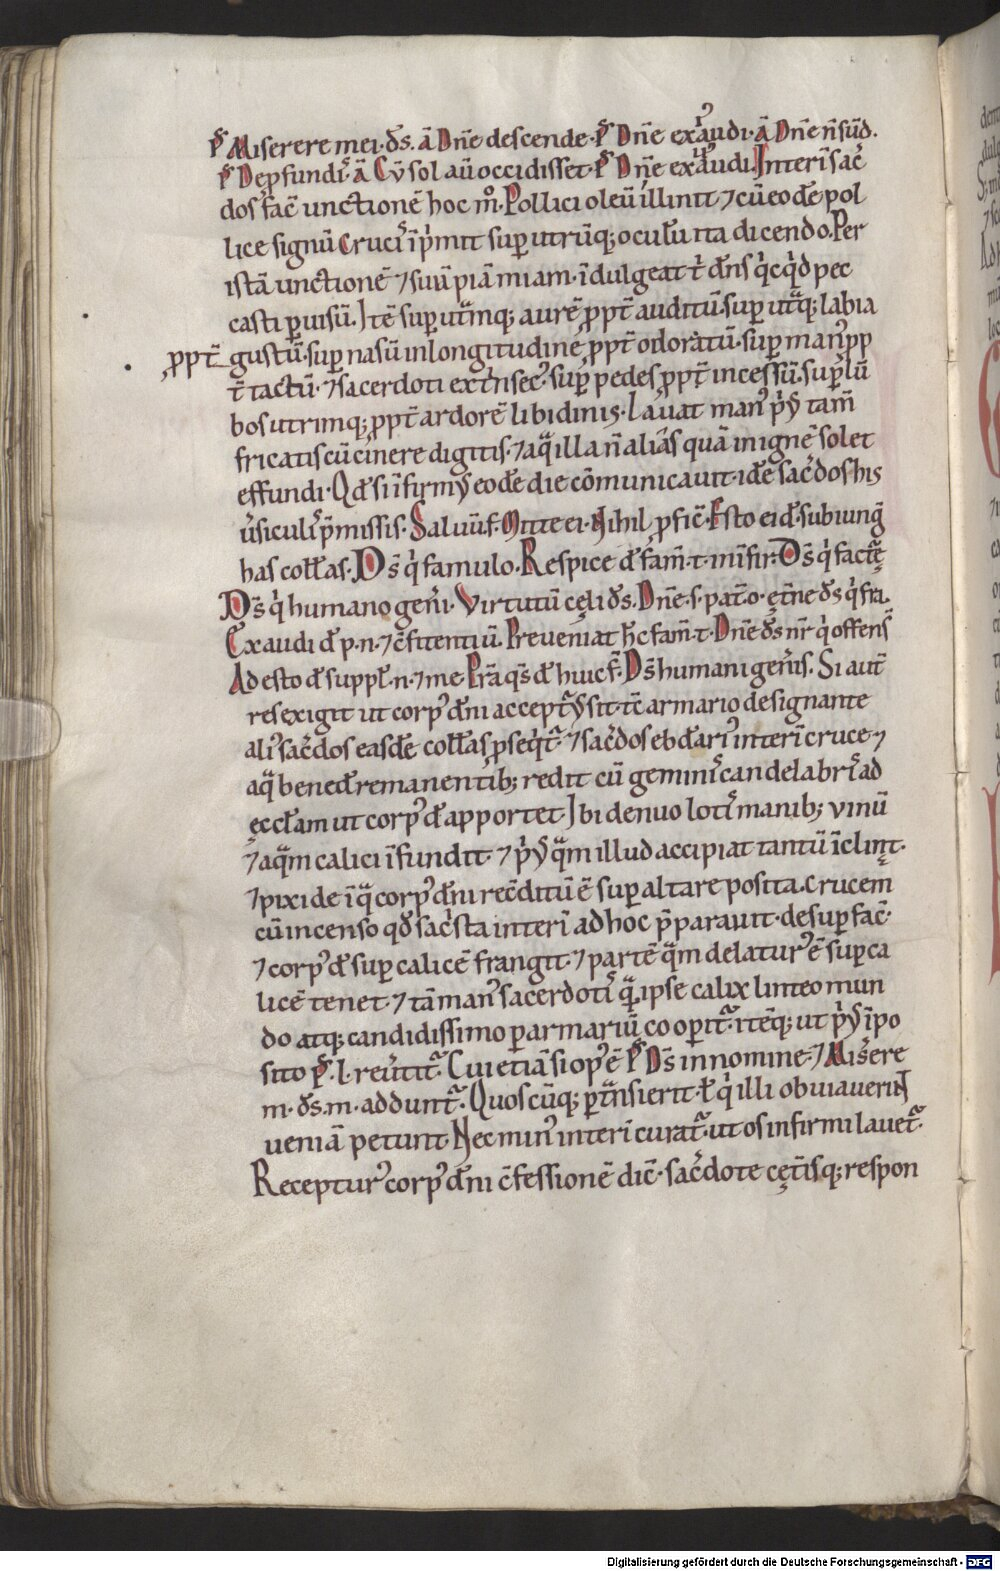 p̄s Miserere mei ds̄. ā Dn̄e descende. p̄s Dn̄e exaudi. ā Dn̄e n̄ sūd.
p̄s De pfundis. ā Cū sol aū occidisset. p̄s Dn̄e exaudi. Interī sac̄
dos fac̄ unctionē hoc mº. Pollici oleū illinit ⁊ cū eodē pol
lice signū crucis īp̄mit sup utrūq; oculū ita dicendo. Per
istā unctionē ⁊ suū piā miam. īdulgeat t̄ dn̄s qicqid pec
casti p uisū. Itē sup utrāmq; aurē ppt̄ auditū. sup utraq; labia
ppt̄ gustū. sup nasū in longitudinē ppt̄ odoratū. sup man9 pp
t̄ tactū. ⁊ sacerdoti extrinsec9. sup pedes ppt̄ incessū. sup lū
bos utrimq; ppt̄ ardorē libidinis. Lauat man9 p9 tam̄
fricatis cū cinere digitis. ⁊ aqa illa n̄ alias quā in ignē solet
effundi. Qd̄ si īfirm9 eodē die cōmunicauit. idē sac̄dos his
ūsiculis p̄missis. Saluū f. Mitte ei. Nihil pfic̄. Esto ei d̄. subiungit
has coll̄as. Ds̄ qi famulo. Respice d̄ fam̄. t. in īfir. Ds̄ qi facturę
Ds̄ qi humano gen̄i. Virtutū cęli ds̄. Dn̄e. s. pat̄ o. et̄ne ds̄ qi fra.
Exaudi d̄ p. n. ⁊ c̄fitentiū. Preueniat h̄c fam̄. t. Dn̄e ds̄ nr̄ qi offens̄
Adesto d̄ suppl̄. n. ⁊ me. Pra qs̄ d̄ huic f. Ds̄ humani gen̄is. Si aut̄
res exigit ut corp9 dn̄i accept9 sit. tc̄ armario designante
ali9 sac̄dos easdē coll̄as pseqit̄. ⁊ sac̄dos ebdar9 interī cruce ⁊
aqa bened̄ remanentib; redit cū geminis candelabris ad
ęccl̄am ut corp9 d̄ apportet. Ibi denuo lotis manib; vinū
⁊ aqam calici īfundit. ⁊ p9 qam illud accipiat tantū īclinęt.
⁊ pixide ī qa corp9 dn̄i rec̄ditū ē sup altare posita. crucem
cū incenso qd̄ sac̄sta interī ad hoc p̄parauit. desup fac̄.
⁊ corp9 d̄ sup calicē frangit. ⁊ partē qam delatur9 ē sup ca
licē tenet. ⁊ tā man9 sacerdotis qam ipse calix linteo mun
do atq; candidissimo p armariū coopit̄. itēq; ut p9 īpo
sito p̄s. l. reūtit̄. Cui etiā si op9 ē p̄s Ds̄ in nomine. ⁊ Miserere
m. ds̄. m. addunt̄. Quoscūq; p t̄nsierit. ł qi illi obuiauerint
ueniā petunt. Nec min9 interī curat̄. ut os infirmi lauet̄.
Receptur9 corp9 dn̄i c̄fessionē dic̄. sac̄dote cęt̄isq; respon